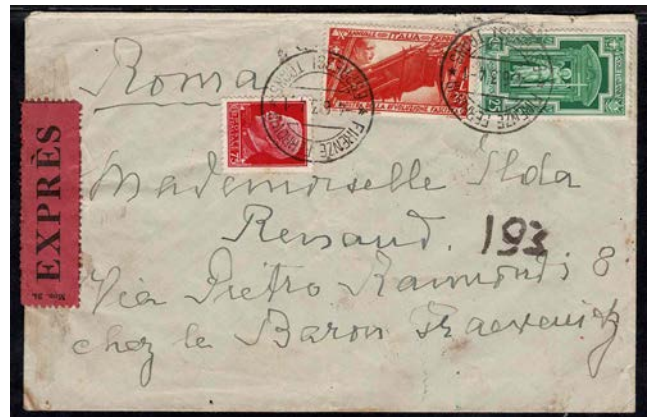 Roma
EXPRÈS
ITALIA
Mademoiselle Ilda
Renaud. 193
Via Pietro Raimondi 8
chez le Baron